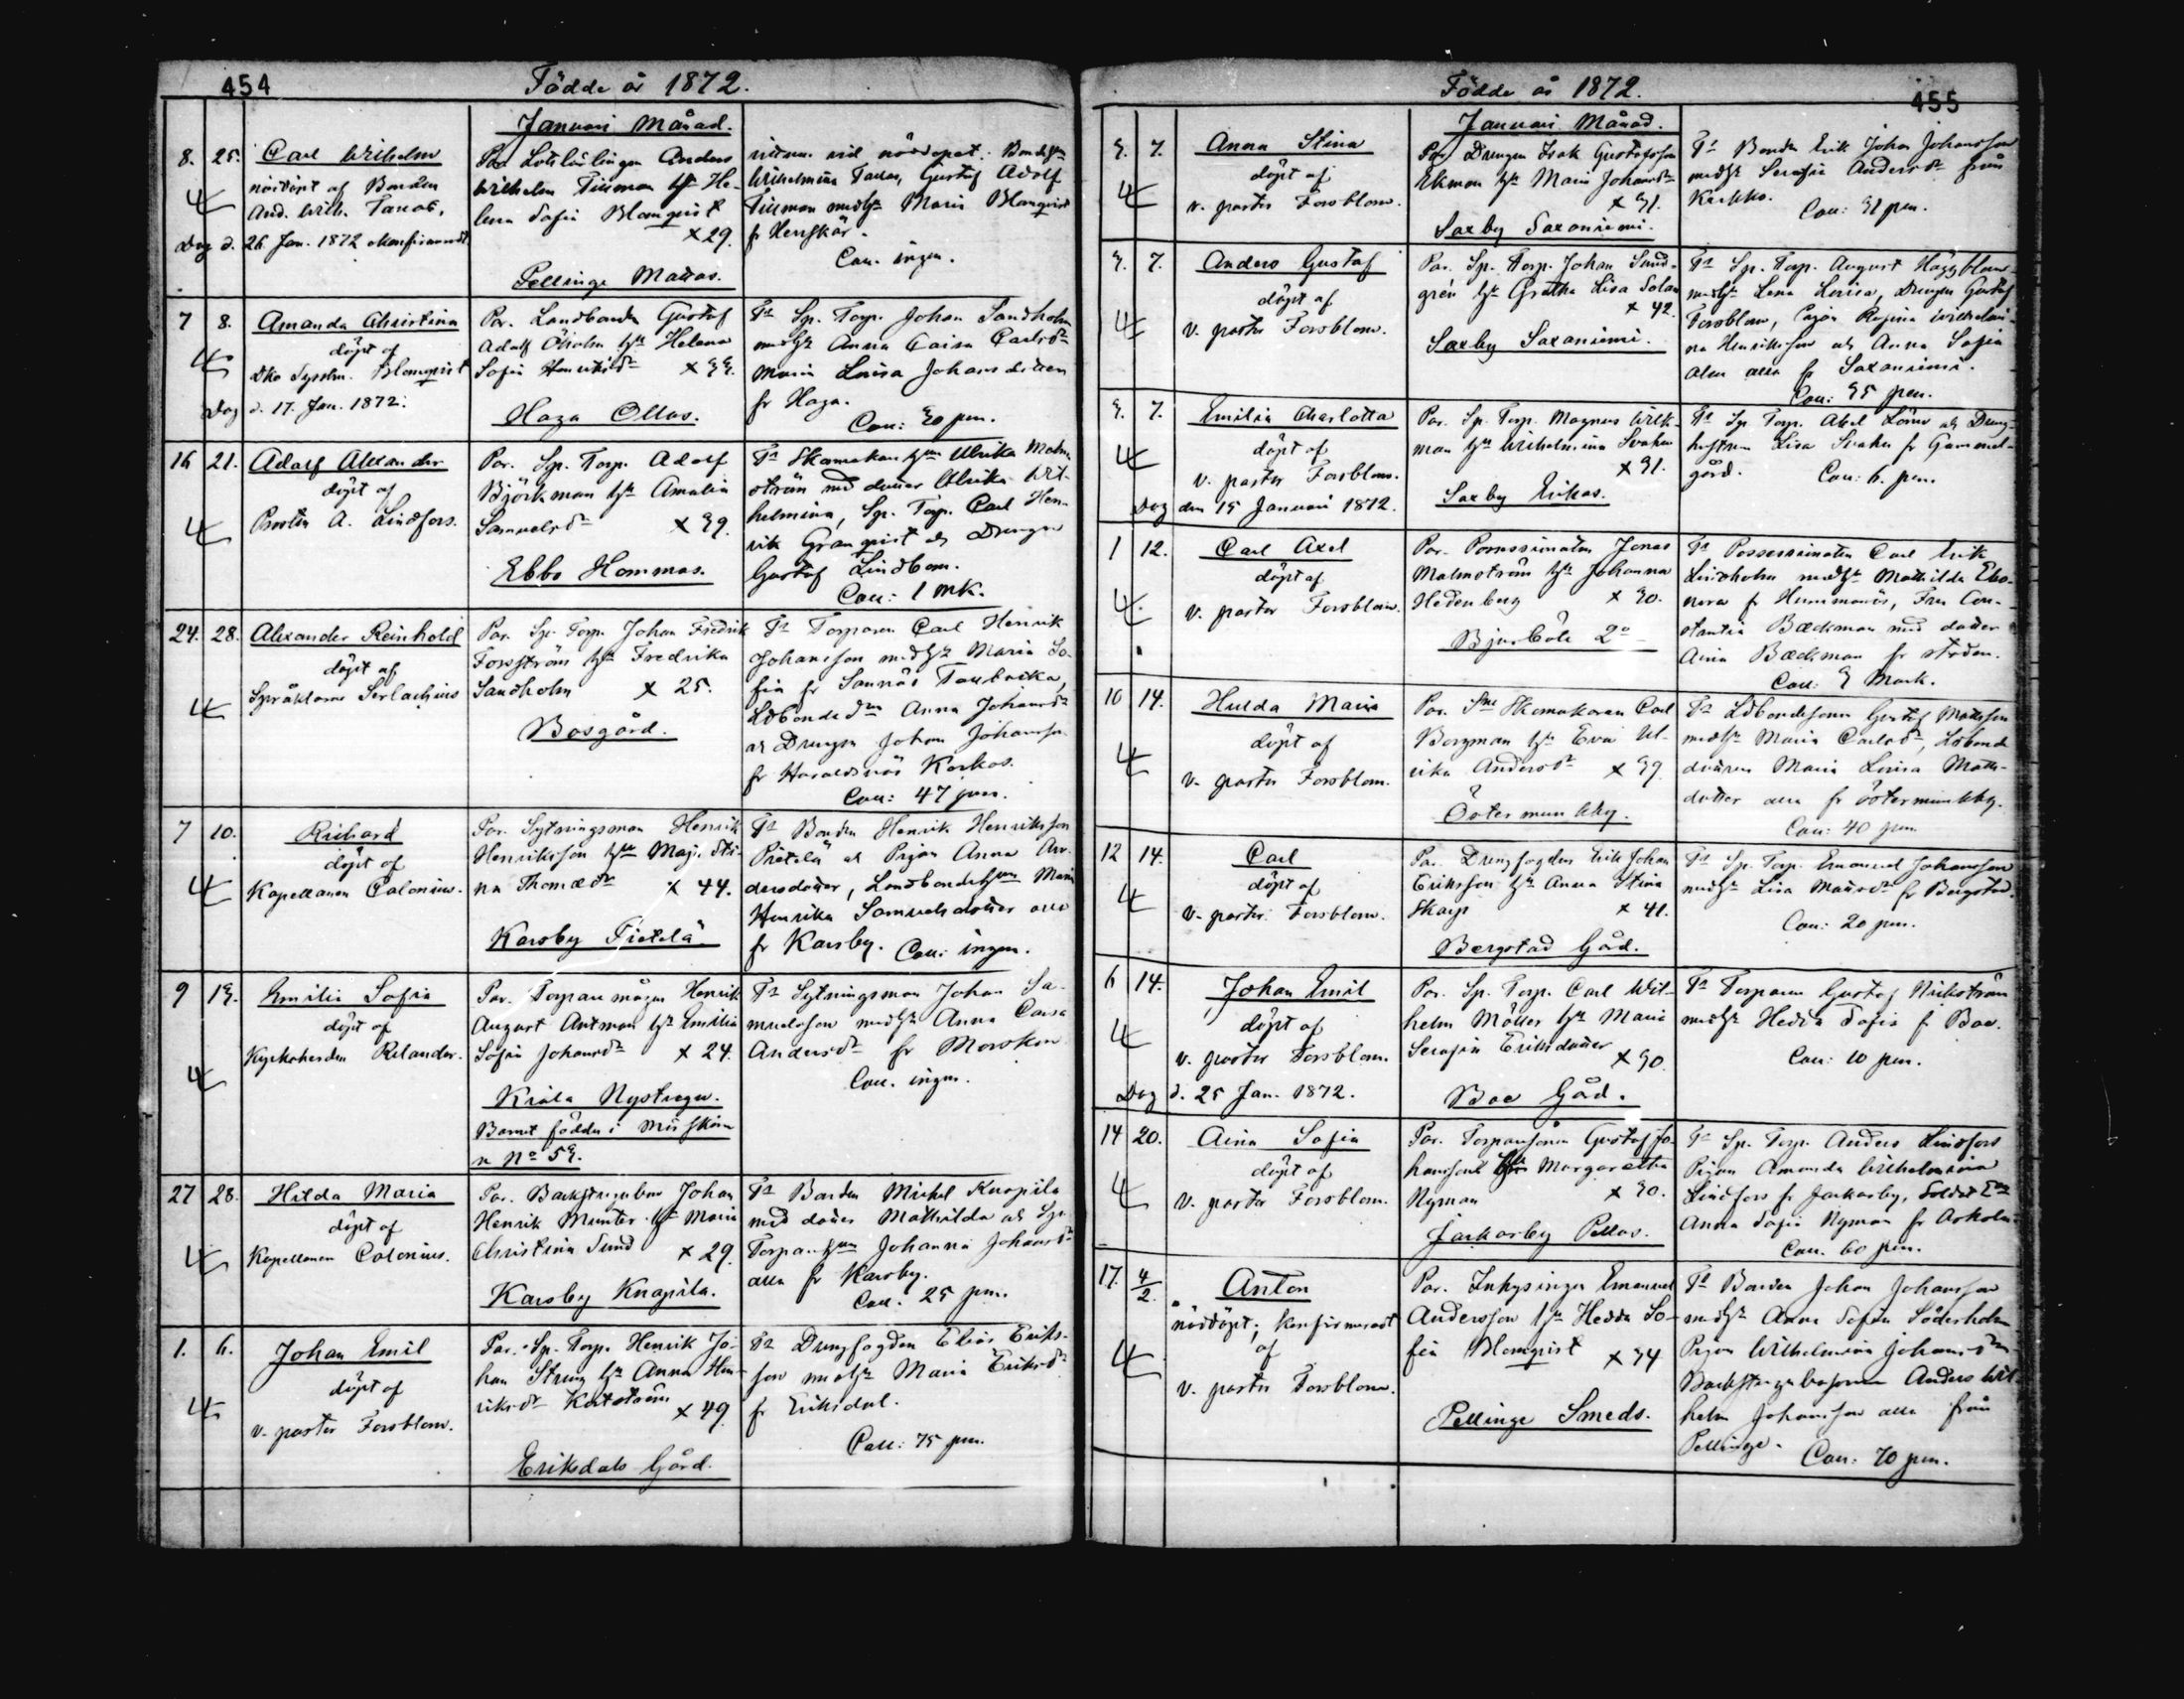 454
Födde år 1872.
Januari Månad.
8. 25. Carl Wilhelm
nöddöpt af Bonden
And. Wilh. Tavas,
Dag d. 26 Jan. 1872 konfirmeradt
Par. Lotslärlingen Anders
Wilhelm Tillman h. He-
lena Sofia Blomqvist
x 29.
Pellinge Mattas.
vittnen vid nöddopet: Bonde
Wilhelmina Tavas, Gustaf Adolf
Tillman med h. Maria Blomqvist
fr
Can. ingen.
7 8. Amanda Christina
döpt af
Blomqvist
Dag d. 17. Jan. 1872.
Par. Landbonden Gustaf
Adolf Öholm h. Helena
Sofia Henriksdr x 33.
Haga Ollas.
Ts Sp. Torp. Johan Sandholm
med h. Anna Caisa Carlsdr
Maria Lovisa Johansdotter
fr Haga.
Can: 30 pen.
16 21. Adolf Alexander
döpt af
Prosten A. Lindfors.
Par. Sp. Torp. Adolf
Björkman h. Amalia
Samuelsdr x 39.
Ebbo Hommas.
Ts Skomakare Ulrika Malm-
ström med dotter Ulrika Wil-
helmina, Sp. Torp. Carl Hen-
rik Granqvist och Drengen
Gustaf Lindbom.
Can: 1 mk.
24. 28. Alexander Reinhold
döpt af
Språklärar Serlachius
Par. Sp. Torp. Johan Fredrik
Forsström h. Fredrika
Sandholm x 25.
Bosgård.
Ts Torparen Carl Henrik
Johansson med h. Maria So-
fia fr Sannäs
Anna Johansdr
och Drengen Johan Johansson
fr Haraldsnäs Korkos.
Can: 47 pen.
7 10. Richard
döpt af
Kapellanen Calonius.
Par. Sytningsman Henrik
Henriksson h. Maja Sti-
na Thomædr x 44.
Karsby Pietilä.
Ts Bonden Henrik Henriksson
Pietilä och Pigan Anna An-
dersdotter, Landbonde Maria
Henrika Samuelsdotter alla
fr Karsby. Can: ingen.
9 13. Emilia Sofia
döpt af
Kyrkoherden Relander.
Par. Torparemågen Henrik
August Antman h. Emilia
Sofia Johansdr x 24.
Kråkö Nystrogen.
Barnet föddes i Mörskom
n No 53.
Ts Sytningsman Johan Sa-
muelsson med h. Anna Caisa
Andersdr fr Morskom
Can. ingen.
27 28. Hilda Maria
döpt af
Kapellanen Calonius.
Par. Backstugubon Johan
Henrik Munter h. Maria
Christina Sund x 29.
Karsby Knapila.
Ts Bonden Michel Knapila
med dotter Mathilda och Sp.
Torpare Johanna Johansdr
alla fr Karsby.
Can: 25 pen.
1. 6. Johan Emil
döpt af
v. pastor Forsblom.
Par. Sp. Torp. Henrik Jo-
han Streng h. Anna Hen-
riksdr x 49.
Eriksdals Gård.
Ts Drengfogden Elias Eriks-
son med h. Maria Eriksdr
fr Eriksdal.
Can: 75 pen.
455
Födde år 1872.
Januari Månad.
3. 7. Anna Stina
döpt af
v. pastor Forsblom.
Par. Drengen Isak Gustafsson
Ekman h. Maria Johansdr
x 31.
Saxby Saxaniemi.
Ts Bonden Erik Johan Johansson
med h. Serafia Andersdr från
Kerkko.
Can: 31 pen.
3. 7. Anders Gustaf
döpt af
v. pastor Forsblom.
Par. Sp. Torp. Johan Sund-
grén h. Gretha Lisa Solan
x 42.
Saxby Saxaniemi.
Ts Sp. Torp. August Häggblom
med h. Lena Lovisa, Drengen Gustaf
Forsblom, Pigan Regina Wilhelmi-
na Henriksson och Anna Sofia
alla fr Saxaniemi.
Can: 35 pen.
3. 7. Emilia Charlotta
döpt af
v. pastor Forsblom.
Dag den 15 Januari 1872.
Par. Sp. Torp. Magnus Wik-
man h. Wilhelmina Svahn
x 31.
Saxby Erikas.
Ts Sp Torp. Abel Lönn och Dreng-
hustrun Lisa Svahn fr Gammel-
gård. Can: 6. pen.
1 12. Carl Axel
döpt af
v. pastor Forsblom.
Par. Possessionaten Jonas
Malmström h. Johanna
Hedenberg x 30.
Bjurböle 2o
Ts Possessionaten Carl Erik
Lindholm med h. Mathilda Eleo-
nora fr Hummanäs, Fru Con-
stantia Bæckman med dotter
Aina Bæckman fr staden.
Can: 3 Mark.
10 14. Hulda Maria
döpt af
v. pastor Forsblom.
Par. Skomakaren Carl
Borgman h. Eva Ul-
rika Andersdr x 39
Östermunkby.
Ts Gustaf Mattsson
med h. Maria Carlsdr,
Maria Lovisa Matts-
dotter alla fr Östermunkby.
Can: 40 pen.
12 14. Carl
döpt af
v. pastor Forsblom.
Par. Drengfogden Erik Johan
Eriksson h. Anna Stina
Skarp x 41.
Bergstad Gård.
Ts Sp. Torp. Emanuel Johansson
med h. Lisa Mattsdr fr Bergstad.
Can: 20 pen.
6 14. Johan Emil
döpt af
v. pastor Forsblom.
Dag d. 25 Jan. 1872.
Par. Sp. Torp. Carl Wil-
helm Möller h. Maria
Serafia Eriksdotter
x 30
Boe Gård.
Ts Torparen Gustaf Nickström
med h. Hedda Sofia fr Boe.
Can: 10 pen.
14 20. Aina Sofia
döpt af
v. pastor Forsblom.
Par. Torparesonen Gustaf Jo-
hansson h. Margaretha
Nyman x 30.
Jackarby Pellas.
Ts Sp. Torp. Anders Lindfors
Pigan Amanda Wilhelmina
Lindfors fr Jackarby, Soldat
Anna Sofia Nyman fr Askola.
Can. 60 pen.
17. 4/2. Anton
nöddöpt; konfirmeradt
af
v. pastor Forsblom.
Par. Inhysingen Emanuel
Andersson h. Hedda So-
fia Blomqvist x 34
Pellinge Smeds.
Ts Bonden Johan Johansson
med h. Anna Sofia Söderholm
Pigan Wilhelmina Johansdr
Backstugubosonen Anders Wil-
helm Johansson alla från
Pellinge. Can: 70 pen.